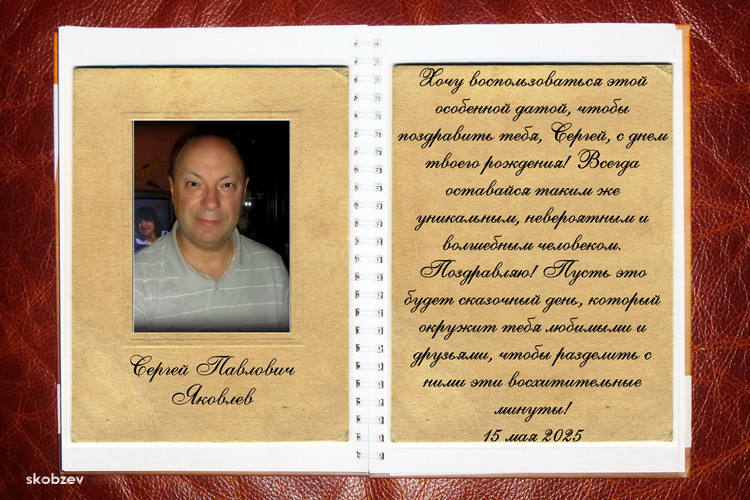 Сергей Павлович
Яковлев
Хочу воспользоваться этой
особенной датой, чтобы
поздравить тебя, Сергей, с днем
твоего рождения! Всегда
оставайся таким же
уникальным, невероятным и
волшебным человеком.
Поздравляю! Пусть это
будет сказочный день, который
окружит тебя любимыми и
друзьями, чтобы разделить с
ними эти восхитительные
минуты!
15 мая 2025
skobzev